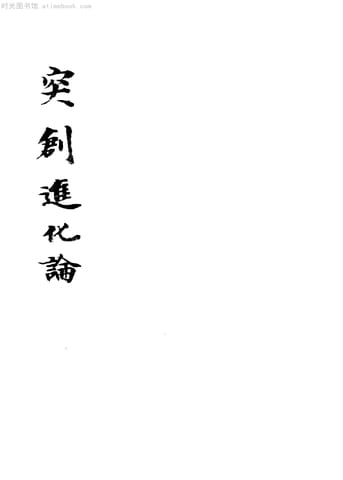 时光图书馆 atimebook.com
突創進化論